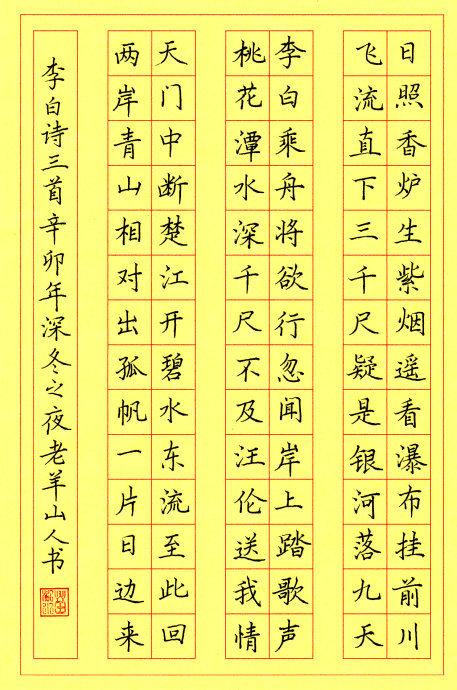 日照香炉生紫烟遥看瀑布挂前川
飞流直下三千尺疑是银河落九天
李白乘舟将欲行忽闻岸上踏歌声
桃花潭水深千尺不及汪伦送我情
天门中断楚江开碧水东流至此回
两岸青山相对出孤帆一片日边来
李白诗三首辛卯年深冬之夜老羊山人书